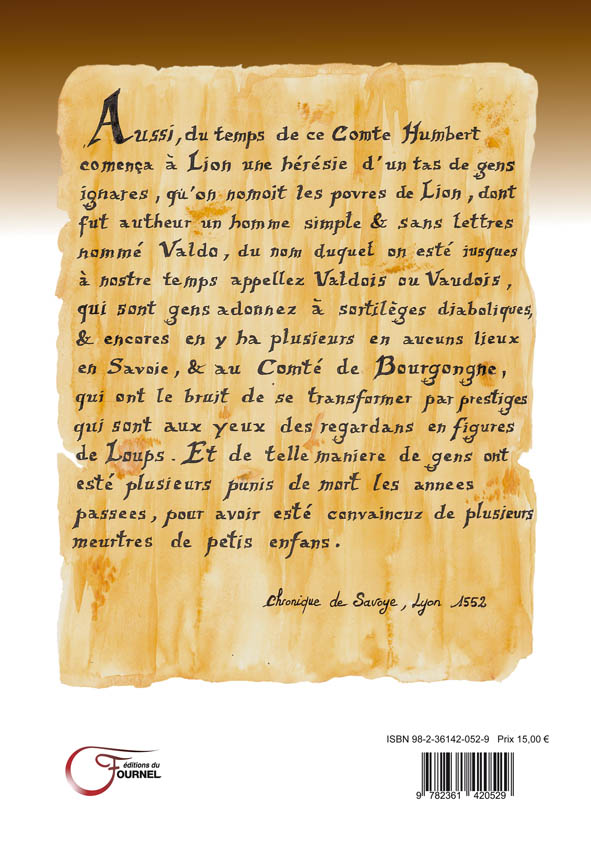 Aussi, du temps de ce Comte Humbert
comença à Lion une hérésie d'un tas de gens
ignares, qu'on nomoit les povres de Lion, dont
fut autheur un homme simple & sans lettres
nommé Valdo, du nom duquel on esté jusques
à nostre temps appellez Valdois ou Vaudois,
qui sont gens adonnez à sortilèges diaboliques,
& encores en y ha plusieurs en aucuns lieux
en Savoie, & au Comté de Bourgongne,
qui ont le bruit de se transformer par prestiges
qui sont aux yeux des regardans en figures
de Loups. Et de telle maniere de gens ont
esté plusieurs punis de mort les annees
passees, pour avoir esté convaincuz de plusieurs
meurtres de petis enfans.
Chronique de Savoye, Lyon 1552
ISBN 98-2-36142-052-9 Prix 15,00 €
éditions du
FOURNEL
9 782361 420529